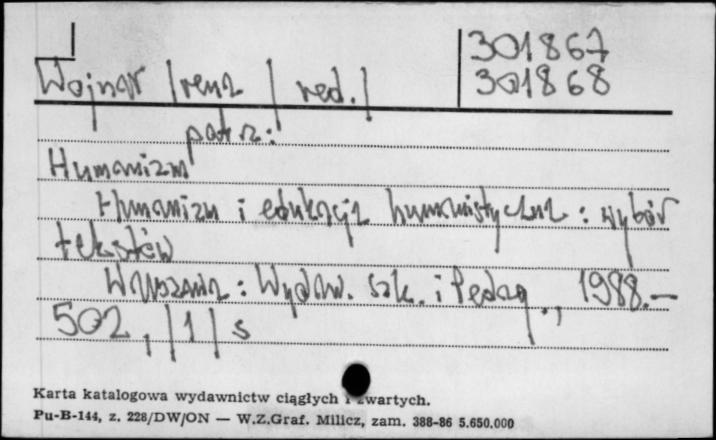 301867
Wojnar Irena /red./
301868
patrz:
Humanizm
Humanizm i edukacja humanistyczna : wybór
tekstów
Warszawa : Wydaw. Szk. i Pedag., 1988.—
502, /1/ s
Karta katalogowa wydawnictw ciągłych i zwartych.
Pu-B-144, z. 228/DW/ON — W.Z.Graf. Milicz, zam. 388-86 5.650.000